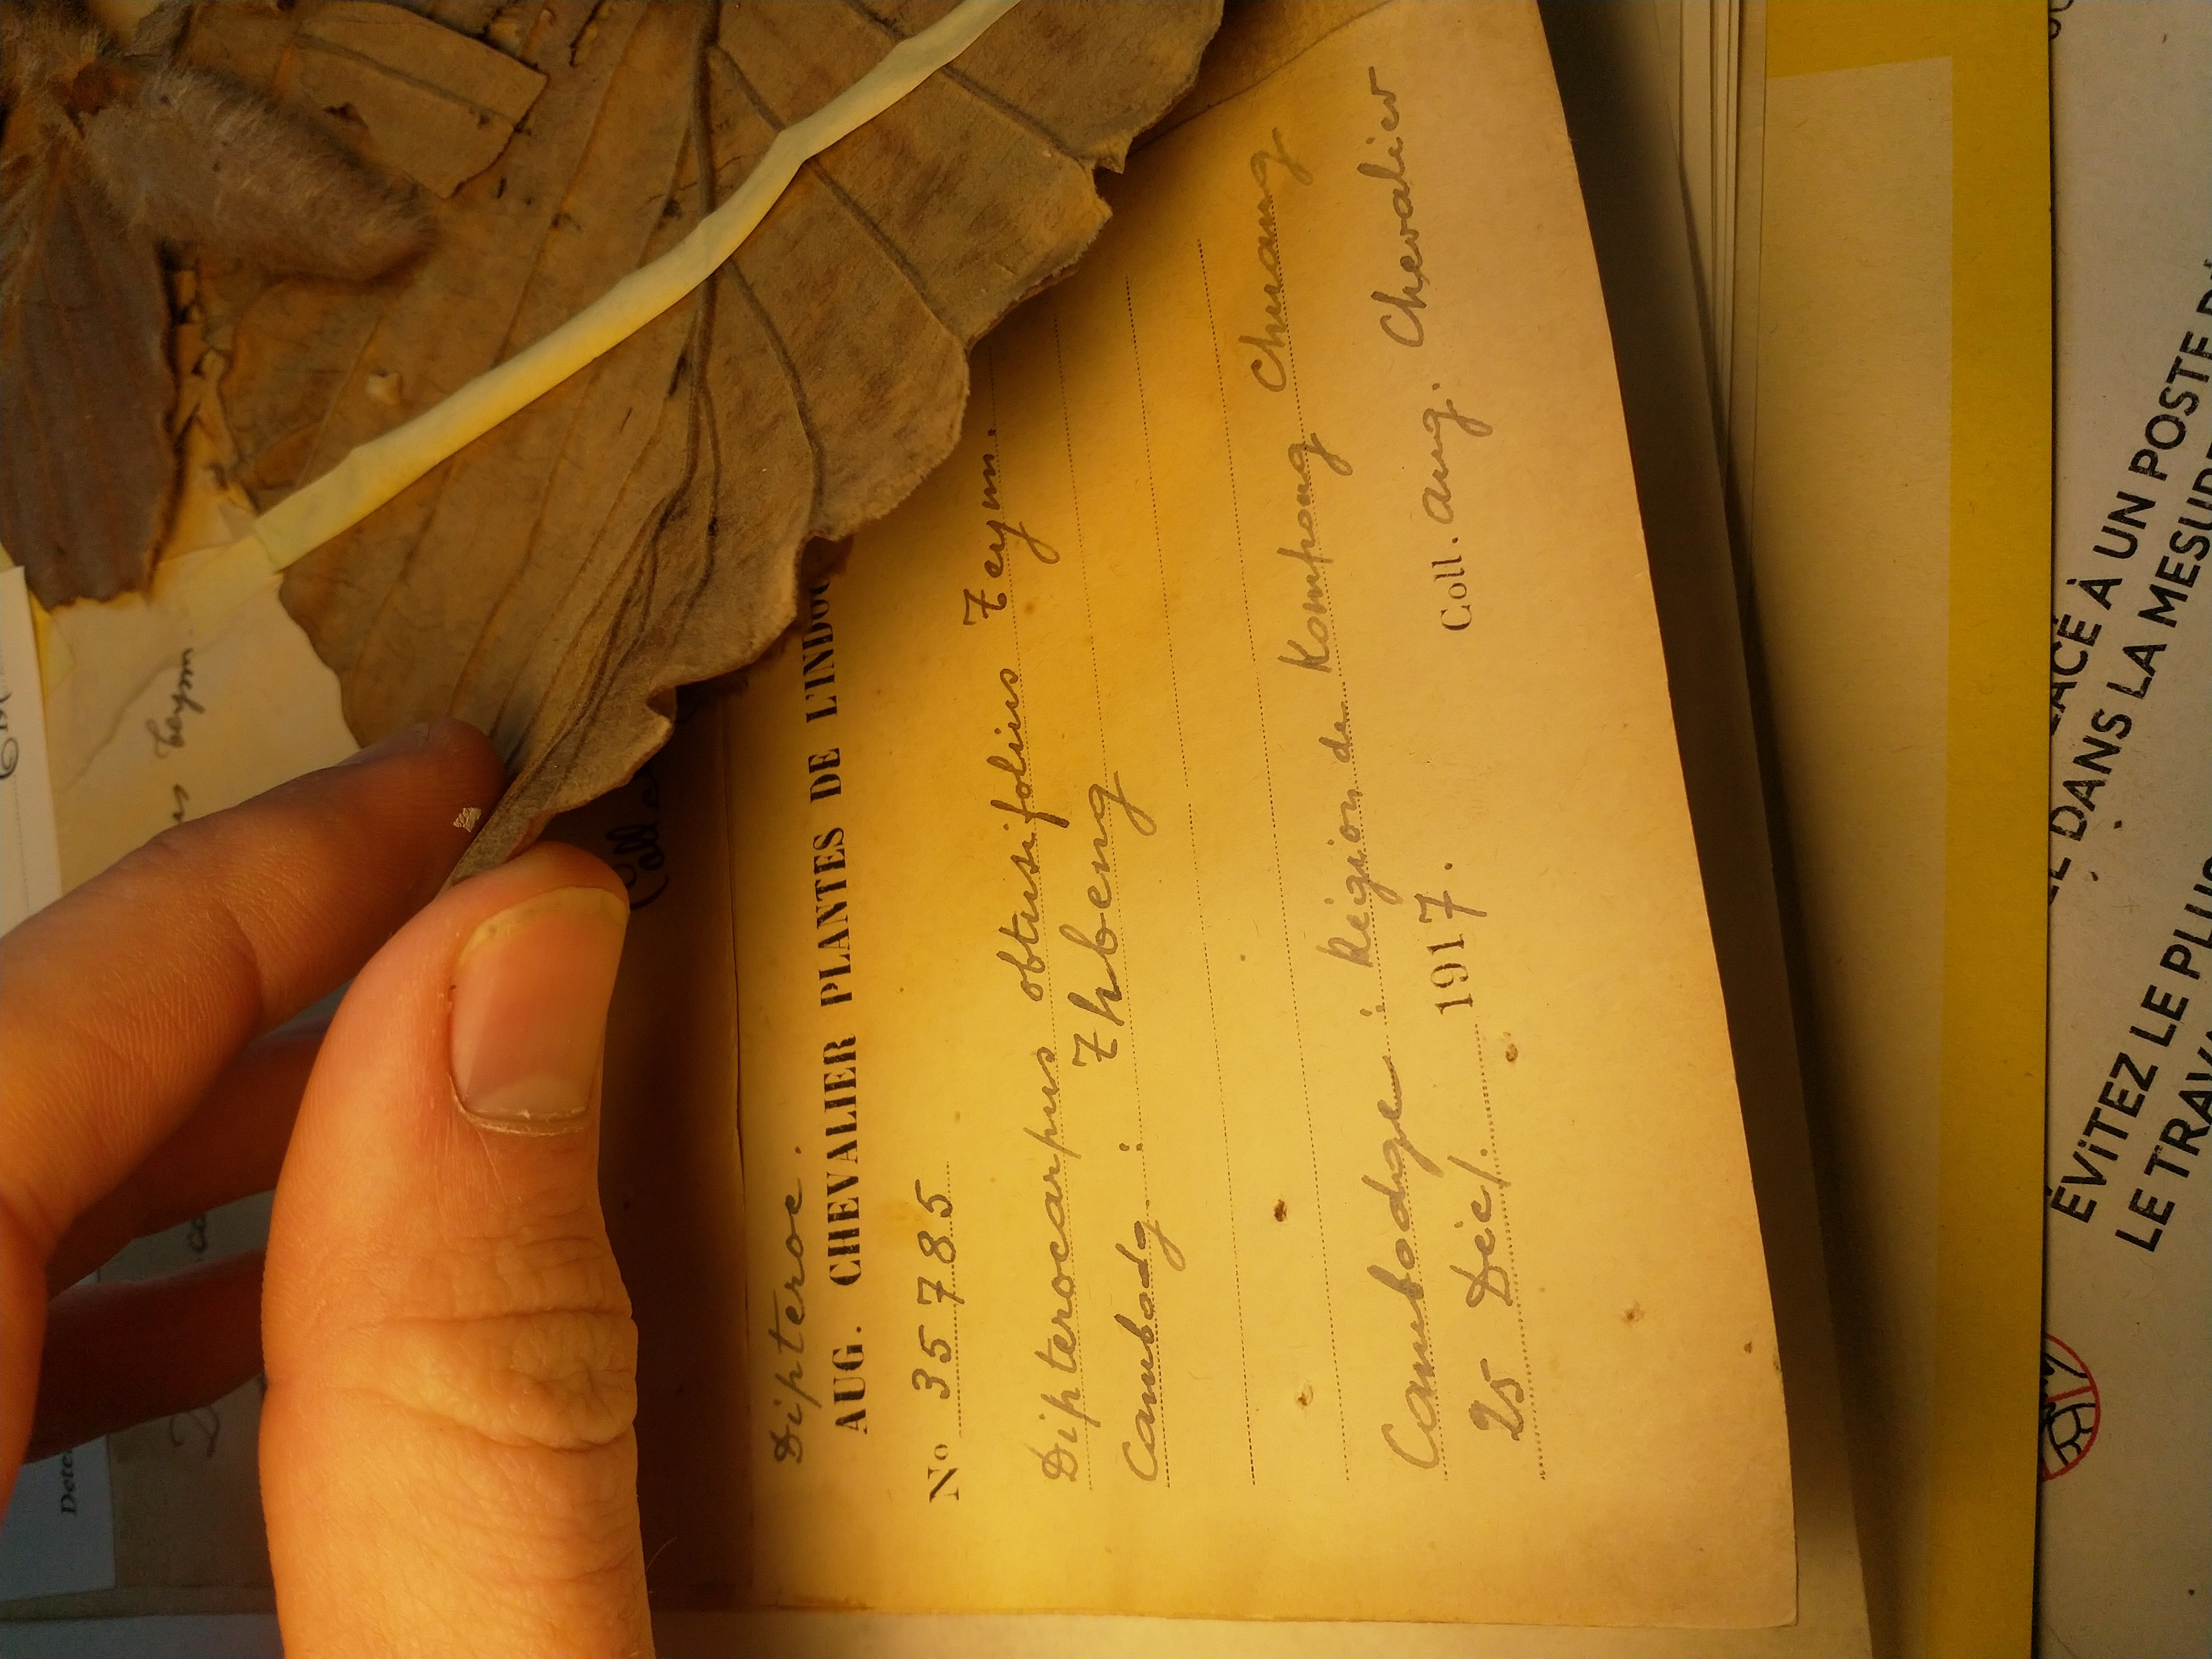 Dipteroc.
AUG. CHEVALIER PLANTES DE L'INDO
No 35785
Dipterocarpus obtusifolius Teym.
Cambodg : Thbeng
Cambodge : Région de Kompong Chnang
25 Déc. 1917. Coll. Aug. Chevalier
Teym
Dete
Coll.
À UN POSTE
DANS LA MESURE
ÉViTEZ LE PLUS
LE TRAVA